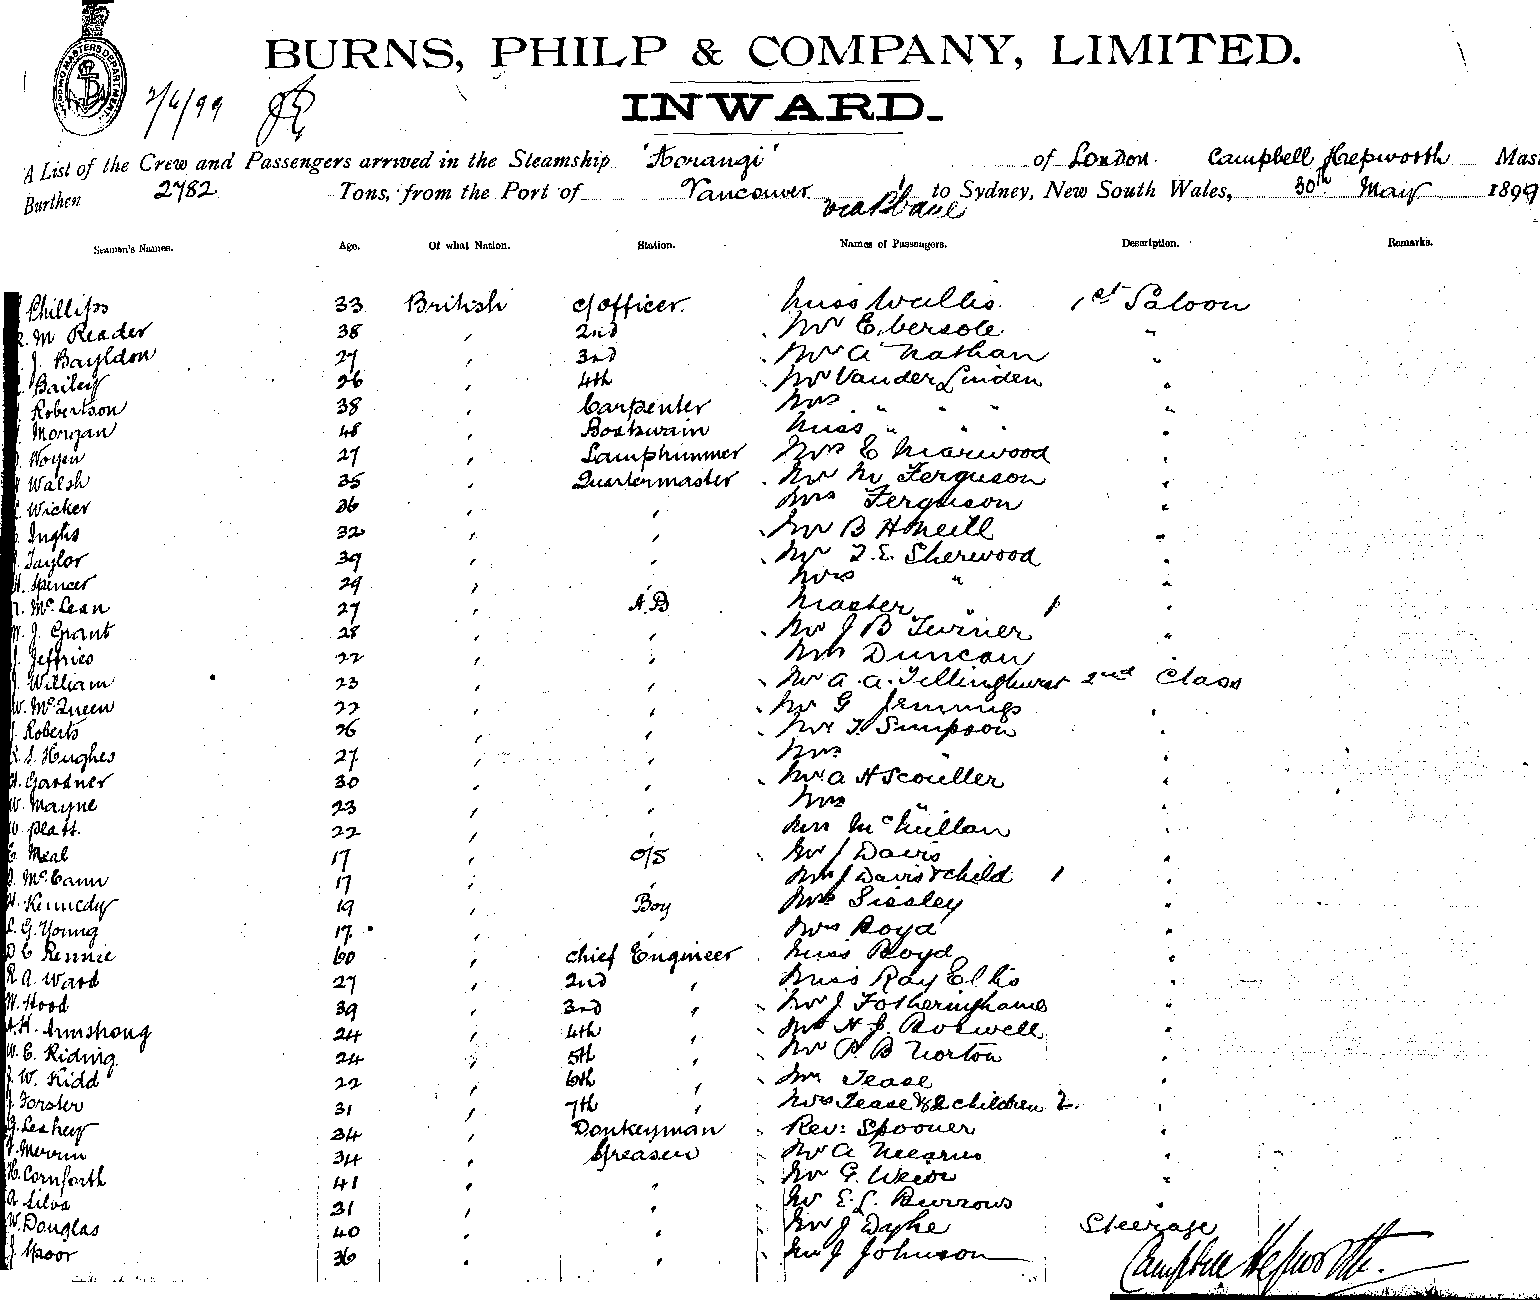 SHIPPING MASTERS DEPARTMENT
2/6/99
BURNS, PHILP & COMPANY, LIMITED.
INWARD.
A List of the Crew and Passengers arrived in the Steamship 'Aorangi' of London. Campbell Hepworth Mas
Burthen 2782 Tons, from the Port of Vancouver to Sydney, New South Wales, 30th May 1899
via
Seaman's Names. Age. Of what Nation. Station. Names of Passengers. Description. Remarks.
Phillips 33 British c/officer. Miss Wallis. 1st Saloon
M Reader 38 " 2nd Mr Ebersole "
J. Bayldon 27 " 3rd Mr A Nathan "
Bailey 26 " 4th Mr Vander Linden "
Robertson 38 " Carpenter Mrs " " "
Morgan 48 " Boatswain Miss " " " "
Noyen 27 " Lamptrimmer Mrs E Marwood "
Walsh 35 " Quartermaster Mr M Ferguson "
Wicker 36 " " Mrs Ferguson "
Inglis 32 " " Mr B H Neill "
Taylor 39 " " Mr T. E. Sherwood "
Spencer 29 " " Mrs " "
McLean 27 " A.B Master " 1 "
J. Grant 28 " " Mr J B Turner "
J. Jeffries 22 " " Duncan "
J. William 23 " " Mr A. A. Tillinghurst 2nd Class
W. McQueen 22 " " Mr G Jennings "
J. Roberts 26 " " Mr T. Simpson "
R. S. Hughes 27 " " Mrs " "
H. Gardner 30 " " Mr A H Scouller "
W. Mayne 23 " " Mrs " "
W. Platt. 22 " " McMillan "
E. Meal 17 " O/S Mr J Davis "
McCann 17 " " Mrs J Davis & child 1 "
H. Kennedy 19 " Boy Mrs Sissley "
L. G. Young 17 " " Mrs Boyd "
D C Rennie 60 " Chief Engineer Miss Boyd "
R A. Ward 27 " 2nd " Miss Ray Ellis "
W. Hood 39 " 3rd " Mr J Fotheringhame "
A. H. Armstrong 24 " 4th " Mr H. J. Boswell "
W. E. Riding 24 " 5th " Mr P. B Norton "
J. W. Kidd 22 " 6th " Mr Tease "
J. Forster 31 " 7th " Mrs Tease & 2 children 2. "
G. Leahey 34 " Donkeyman Rev: Spooner "
Merrin 34 " Greaser Mr A Mearns "
H. Cornforth 41 " " Mr G. Weir "
A. Silva 31 " " Mr E. L. Burrows "
W. Douglas 40 " " Mr J Dyke Steerage
J. Spoor 36 " " Mr J Johnson
Campbell Hepworth.